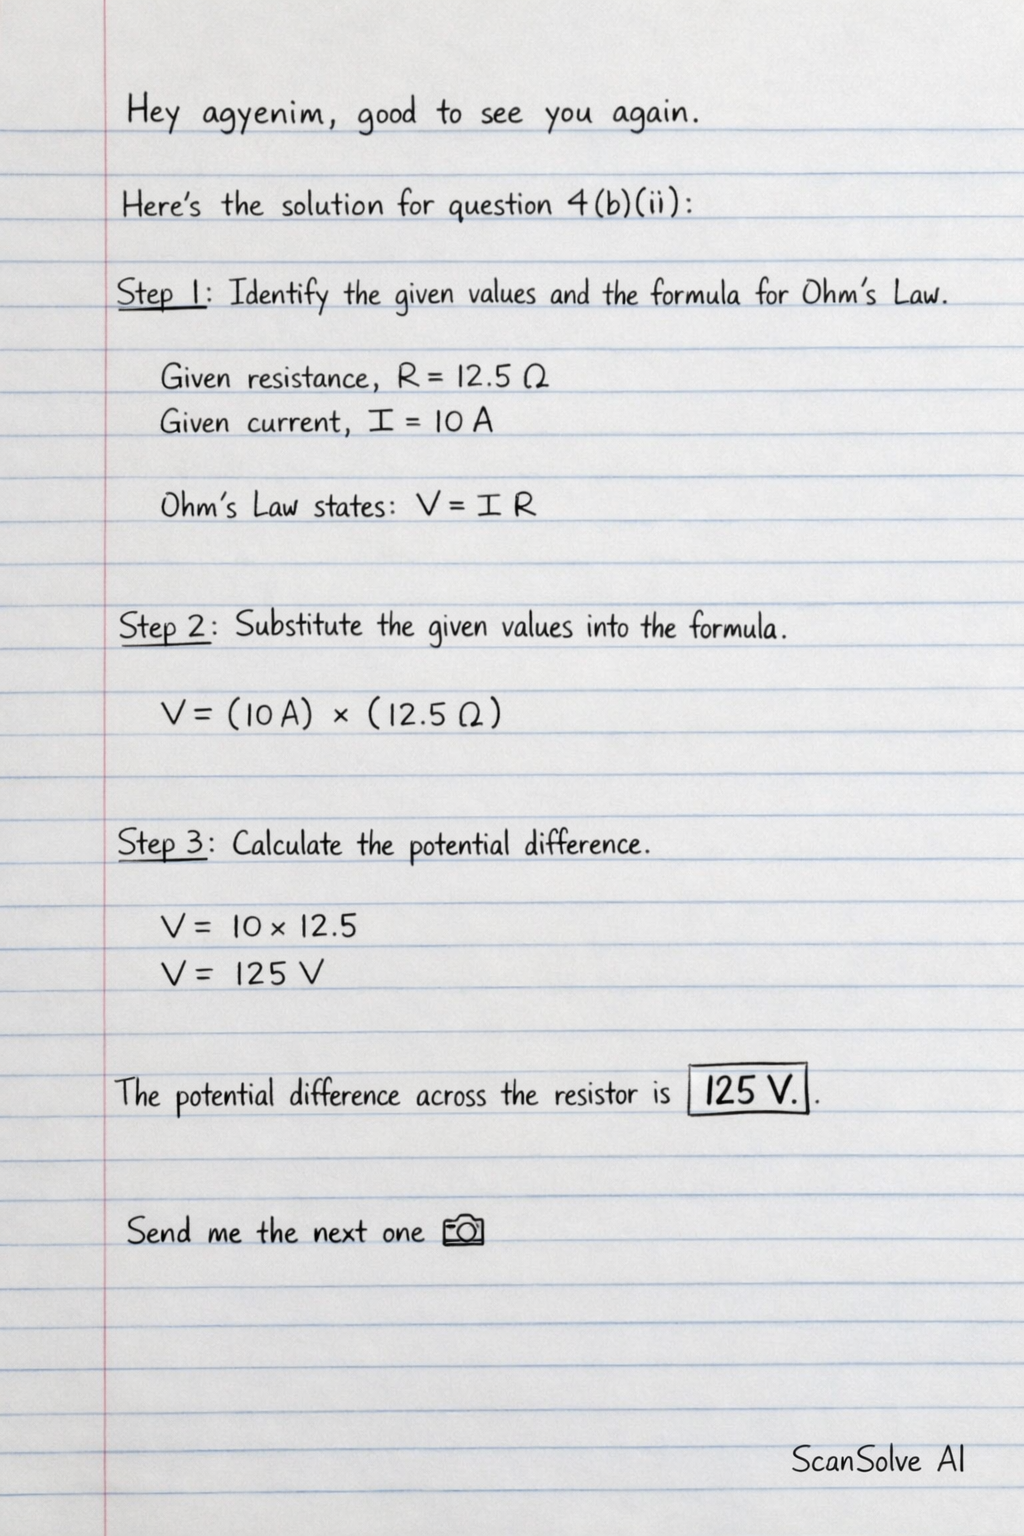 Hey agyenim, good to see you again.
Here's the solution for question 4(b)(ii):
Step 1: Identify the given values and the formula for Ohm's Law.
Given resistance, R = 12.5 Ω
Given current, I = 10 A
Ohm's Law states: V = I R
Step 2: Substitute the given values into the formula.
V = (10 A) × (12.5 Ω)
Step 3: Calculate the potential difference.
V = 10 × 12.5
V = 125 V
The potential difference across the resistor is 125 V..
Send me the next one 📷
ScanSolve AI